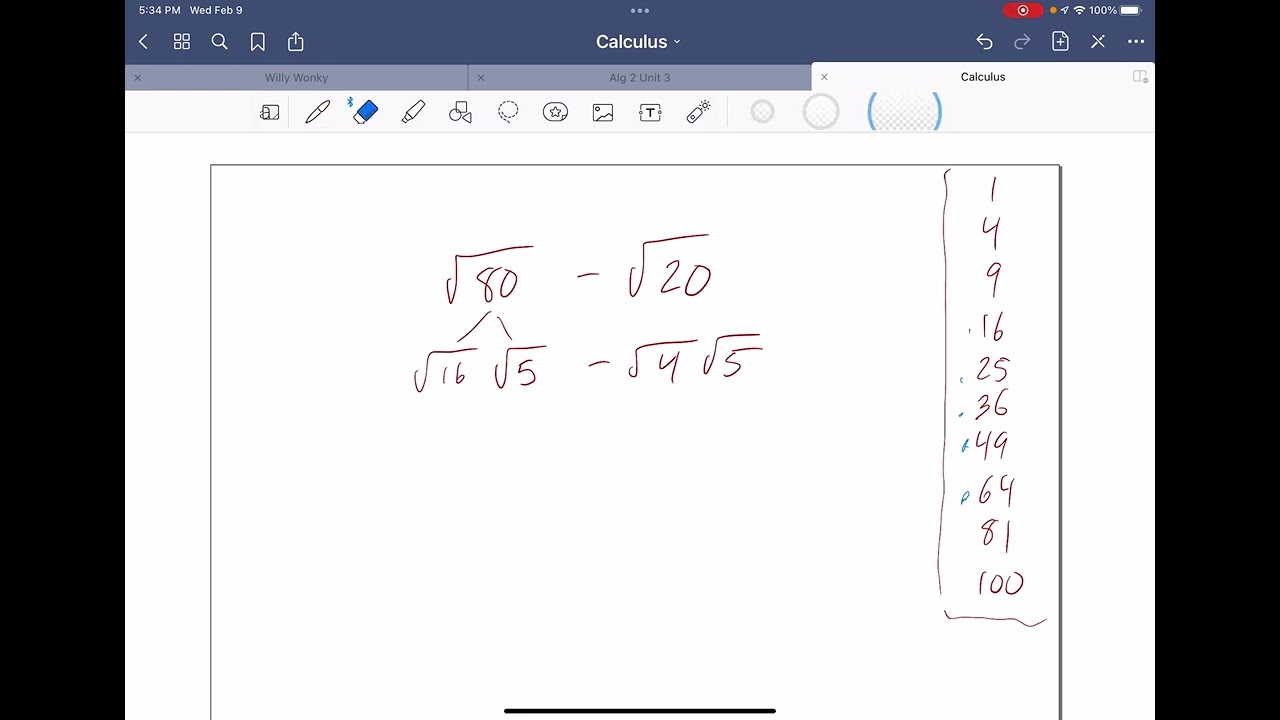 5:34 PM Wed Feb 9
100%
Calculus
Willy Wonky
Alg 2 Unit 3
Calculus
T
√80 - √20
√16 √5 - √4 √5
1
4
9
16
25
36
49
64
81
100